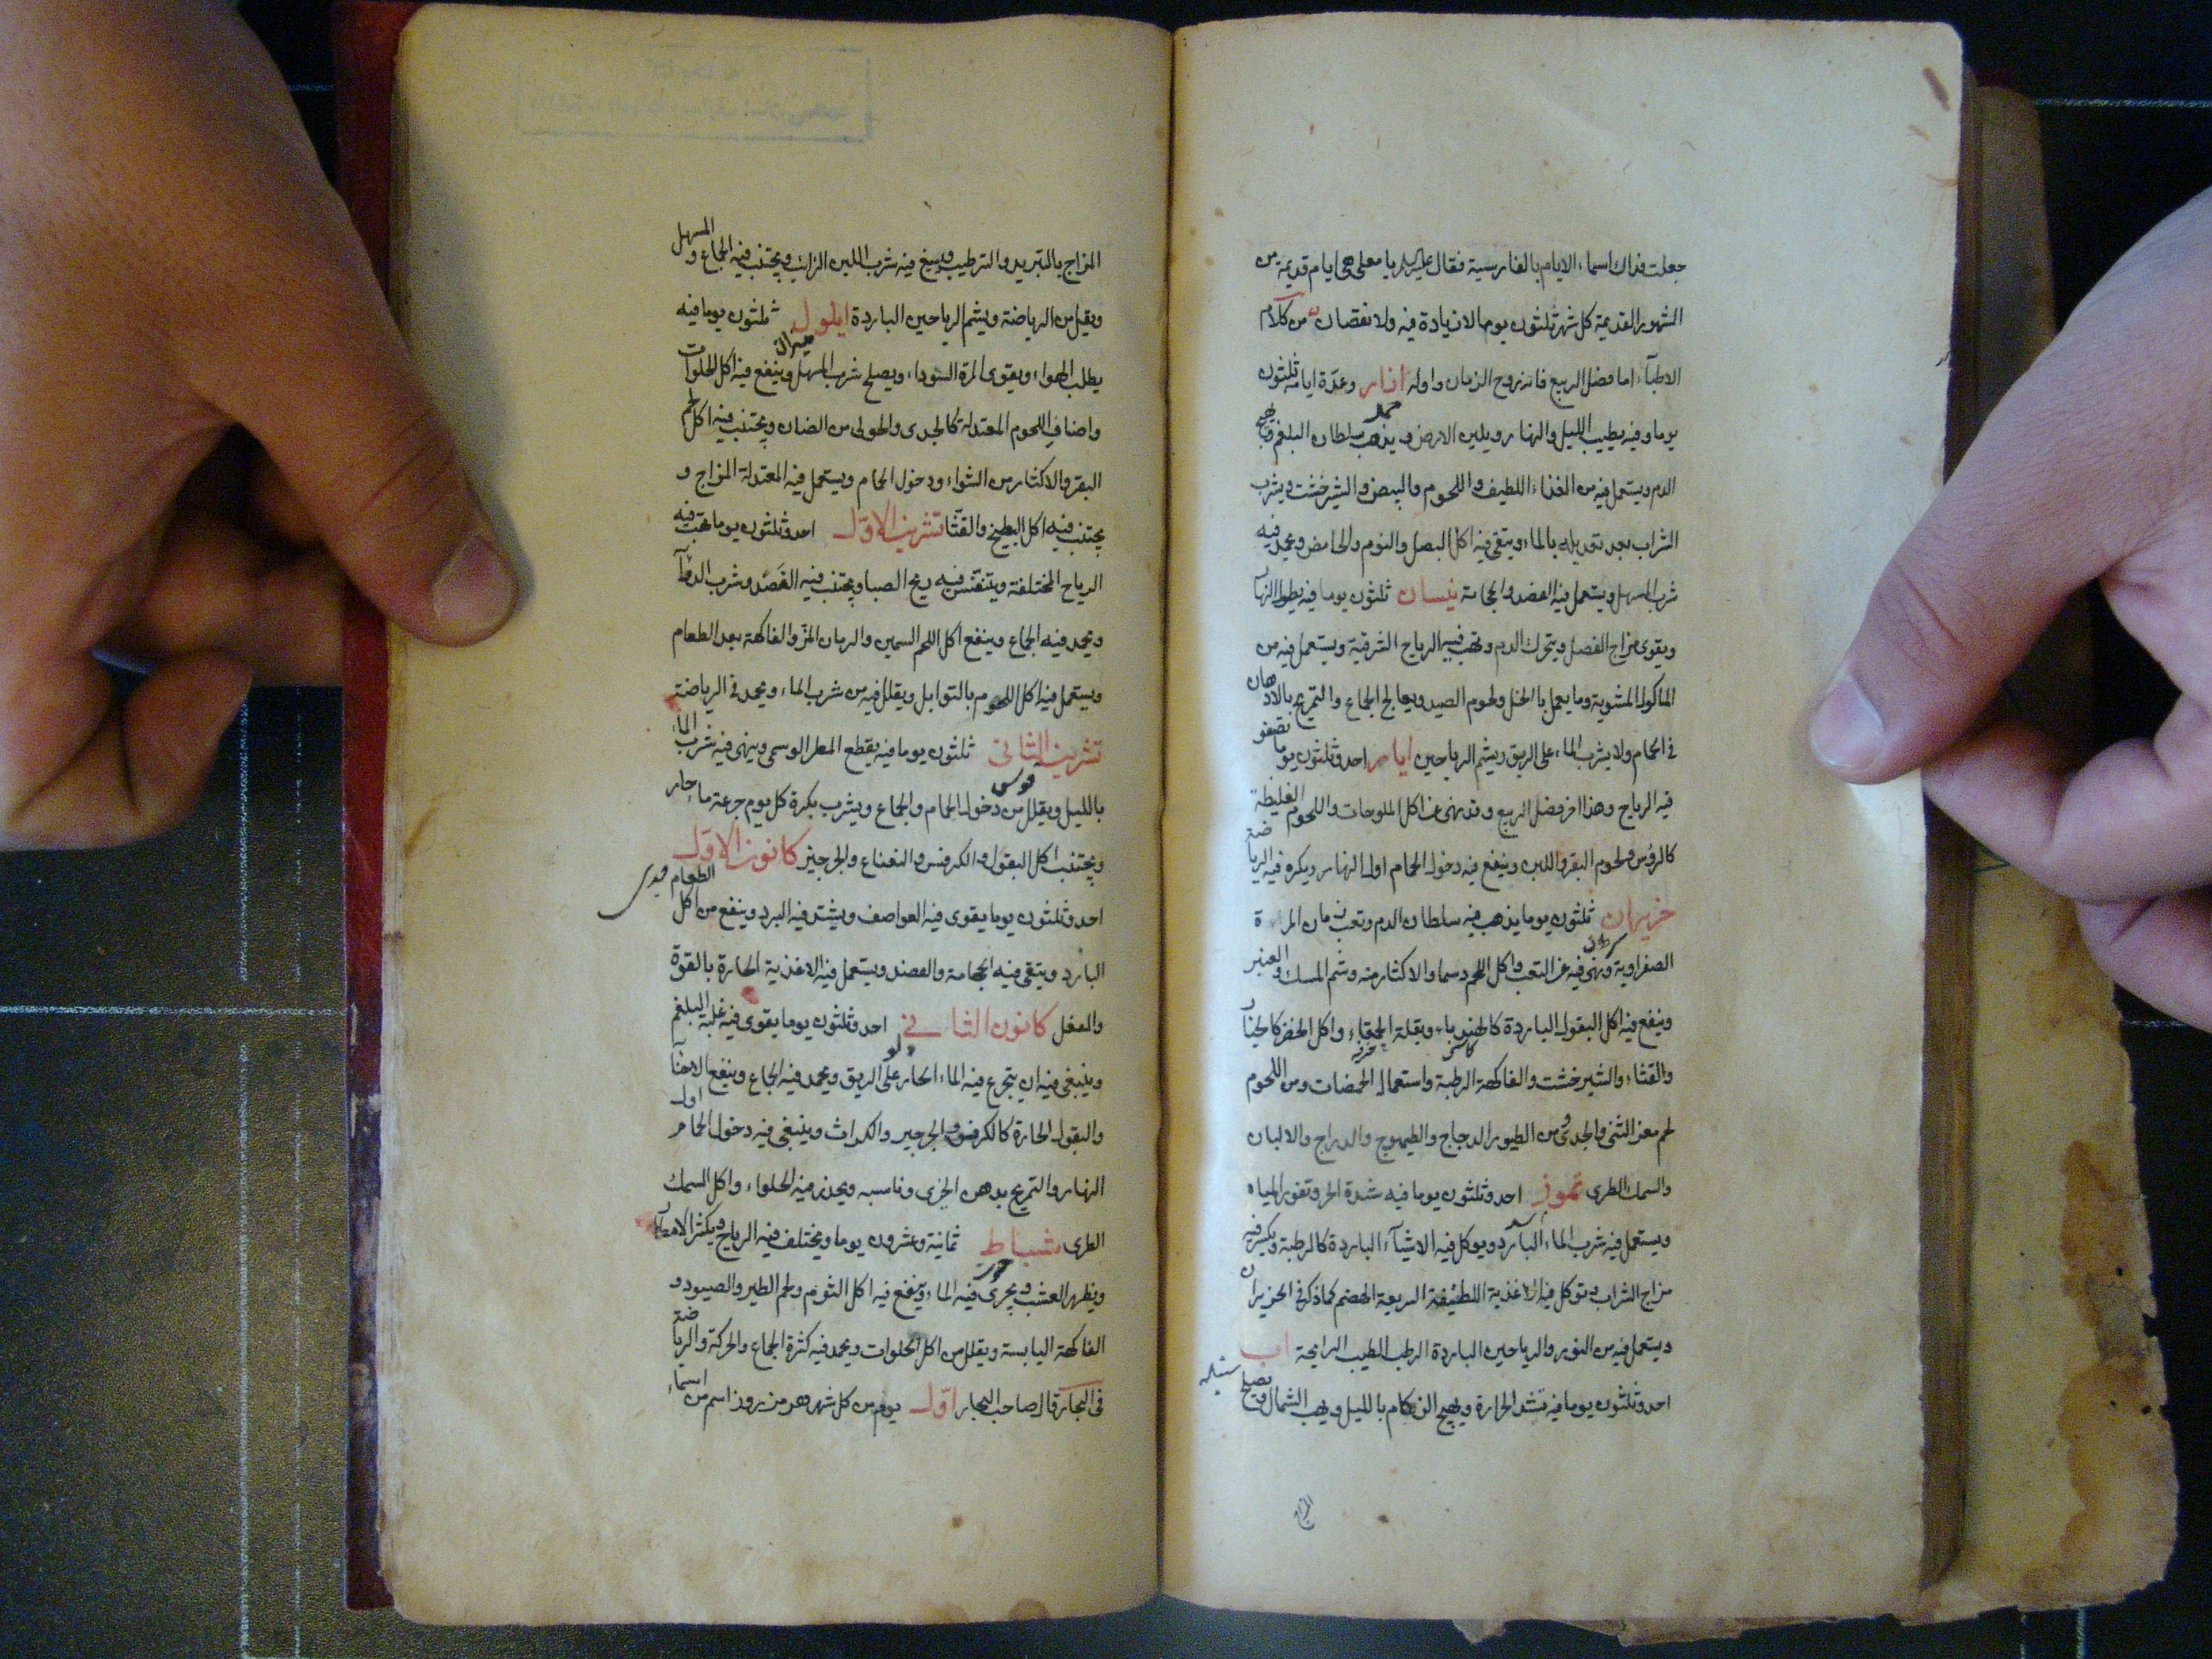 جعلت فداك اسماء الايام بالفارسية فقال عليه السلام يا معلى هي ايام قديمة من
الشهور القديمة كل شهر ثلثون يوما لا زيادة فيه ولا نقصان من كلام
الاطباء اما فصل الربيع فانه روح الزمان واوله اذار وعدة ايامه ثلثون
حمل
يوما وفيه يطيب الليل والنهار ويلين الارض ويذهب سلطان البلغم ويهيج
الدم ويستعمل فيه من الغذاء اللطيف واللحوم والبيض والشيرخشت ويشرب
الشراب بعد تعديله بالماء ويتقى فيه اكل البصل والثوم والحامض ويحمد فيه
شرب المسهل ويستعمل فيه الفصد والحجامة نيسان ثلثون يوما فيه يطول النهار
ويقوى مزاج الفصل ويتحرك الدم وتهب فيه الرياح الشرقية ويستعمل فيه من
الماكول المشوية وما يعمل بالخل ولحوم الصيد ويعالج الجماع والتمريخ بالادهان
في الحمام ولا يشرب الماء على الريق ويشم الرياحين ايار احد وثلثون يوما تصفو
فيه الرياح وهذا اخر فصل الربيع وقد نهى عن اكل الملوحات واللحوم الغليظة
كالرؤس ولحوم البقر واللبن وينفع فيه دخول الحمام اول النهار ويكره فيه الرياضة
حزيران ثلثون يوما يذهب فيه سلطان الدم وتعب زمان المرة
سرطان
الصفراوية ونهى فيه عن التعب واكل اللحم دسما والاكثار منه وشم المسك والعنبر
وينفع فيه اكل البقول الباردة كالهندباء وبقلة الحمقاء واكل الخضر كالخيار
والقثاء والشيرخشت والفاكهة الرطبة واستعمال الحمضات ومن اللحوم
لحم معز الثنى والجدى ومن الطيور الدجاج والطيهوج والدراج والالبان
والسمك الطرى تموز احد وثلثون يوما فيه شدة الحر وتغور المياه
اسد
ويستعمل فيه شرب الماء البارد ويوكل فيه الاشياء الباردة كالرطبة ويكسر فيه
مزاج الشراب وتوكل فيه الاغذية اللطيفة السريعة الهضم كما ذكر في الحزيران
ويستعمل فيه من النور والرياحين الباردة الرطب الطيب الرايحة اب
سنبله
احد وثلثون يوما فيه تشد الحرارة ويهيج الزكام بالليل ويهب الشمال ويصلح
المزاج
المزاج بالتبريد والترطيب ويسيغ فيه شرب اللبن الرائب ويجتنب فيه الجماع والمسهل
ويقل من الرياضة ويشم الرياحين الباردة ايلول ثلثون يوما فيه
ميزان
يطلب الهواء ويقوى المرة السوداء ويصلح شرب المسهل وينفع فيه اكل الحلوات
واصناف اللحوم المعتدلة كالجدى والحولى من الضان ويجتنب فيه اكل لحم
البقر والاكثار من الشواء ودخول الحمام ويستعمل فيه المعتدلة المزاج و
يجتنب فيه اكل البطيخ والقثا تشرين الاول احد وثلثون يوما تهب فيه
الرياح المختلفة ويتنفس فيه ريح الصبا ويجتنب فيه الفصد وشرب الدواء
ويحمد فيه الجماع وينفع اكل اللحم السمين والرمان المز والفاكهة بعد الطعام
ويستعمل فيه اكل اللحوم بالتوابل ويقلل فيه من شرب الماء ويحمد في الرياضة
تشرين الثاني ثلثون يوما فيه يقطع المطر الوسمى وينهى فيه شرب الماء
قوس
بالليل ويقلل من دخول الحمام والجماع ويشرب بكرة كل يوم جرعة ماء حار
ويجتنب اكل البقول والكرفس والنعناع والجرجير كانون الاول
جدى
احد وثلثون يوما يقوى فيه العواصف ويشتد فيه البرد وينفع من اكل الطعام
البارد ويتقى فيه الحجامة والفصد ويستعمل فيه الاغذية الحارة بالقوة
والفعل كانون الثاني احد وثلثون يوما يقوى فيه غلبة البلغم
دلو
وينبغى فيه ان يتجرع فيه الماء الحار على الريق ويحمد فيه الجماع وينفع الاحشاء
والبقول الحارة كالكرفس والجرجير والكراث وينبغى فيه دخول الحمام اول
النهار والتمريخ بدهن الخيرى وناسبه ويحذر فيه الحلواء واكل السمك
الطرى شباط ثمانية وعشرون يوما ويختلف فيه الرياح ويكثر الامطار
حوت
ويظهر العشب ويجرى فيه الماء وينفع فيه اكل الثوم ولحم الطير والصيود و
الفاكهة اليابسة ويقلل من اكل الحلوات ويحمد فيه كثرة الجماع والحركة والرياضة
في البحار قال صاحب البحار اول يوم من كل شهر هرمز روز اسم من اسماء